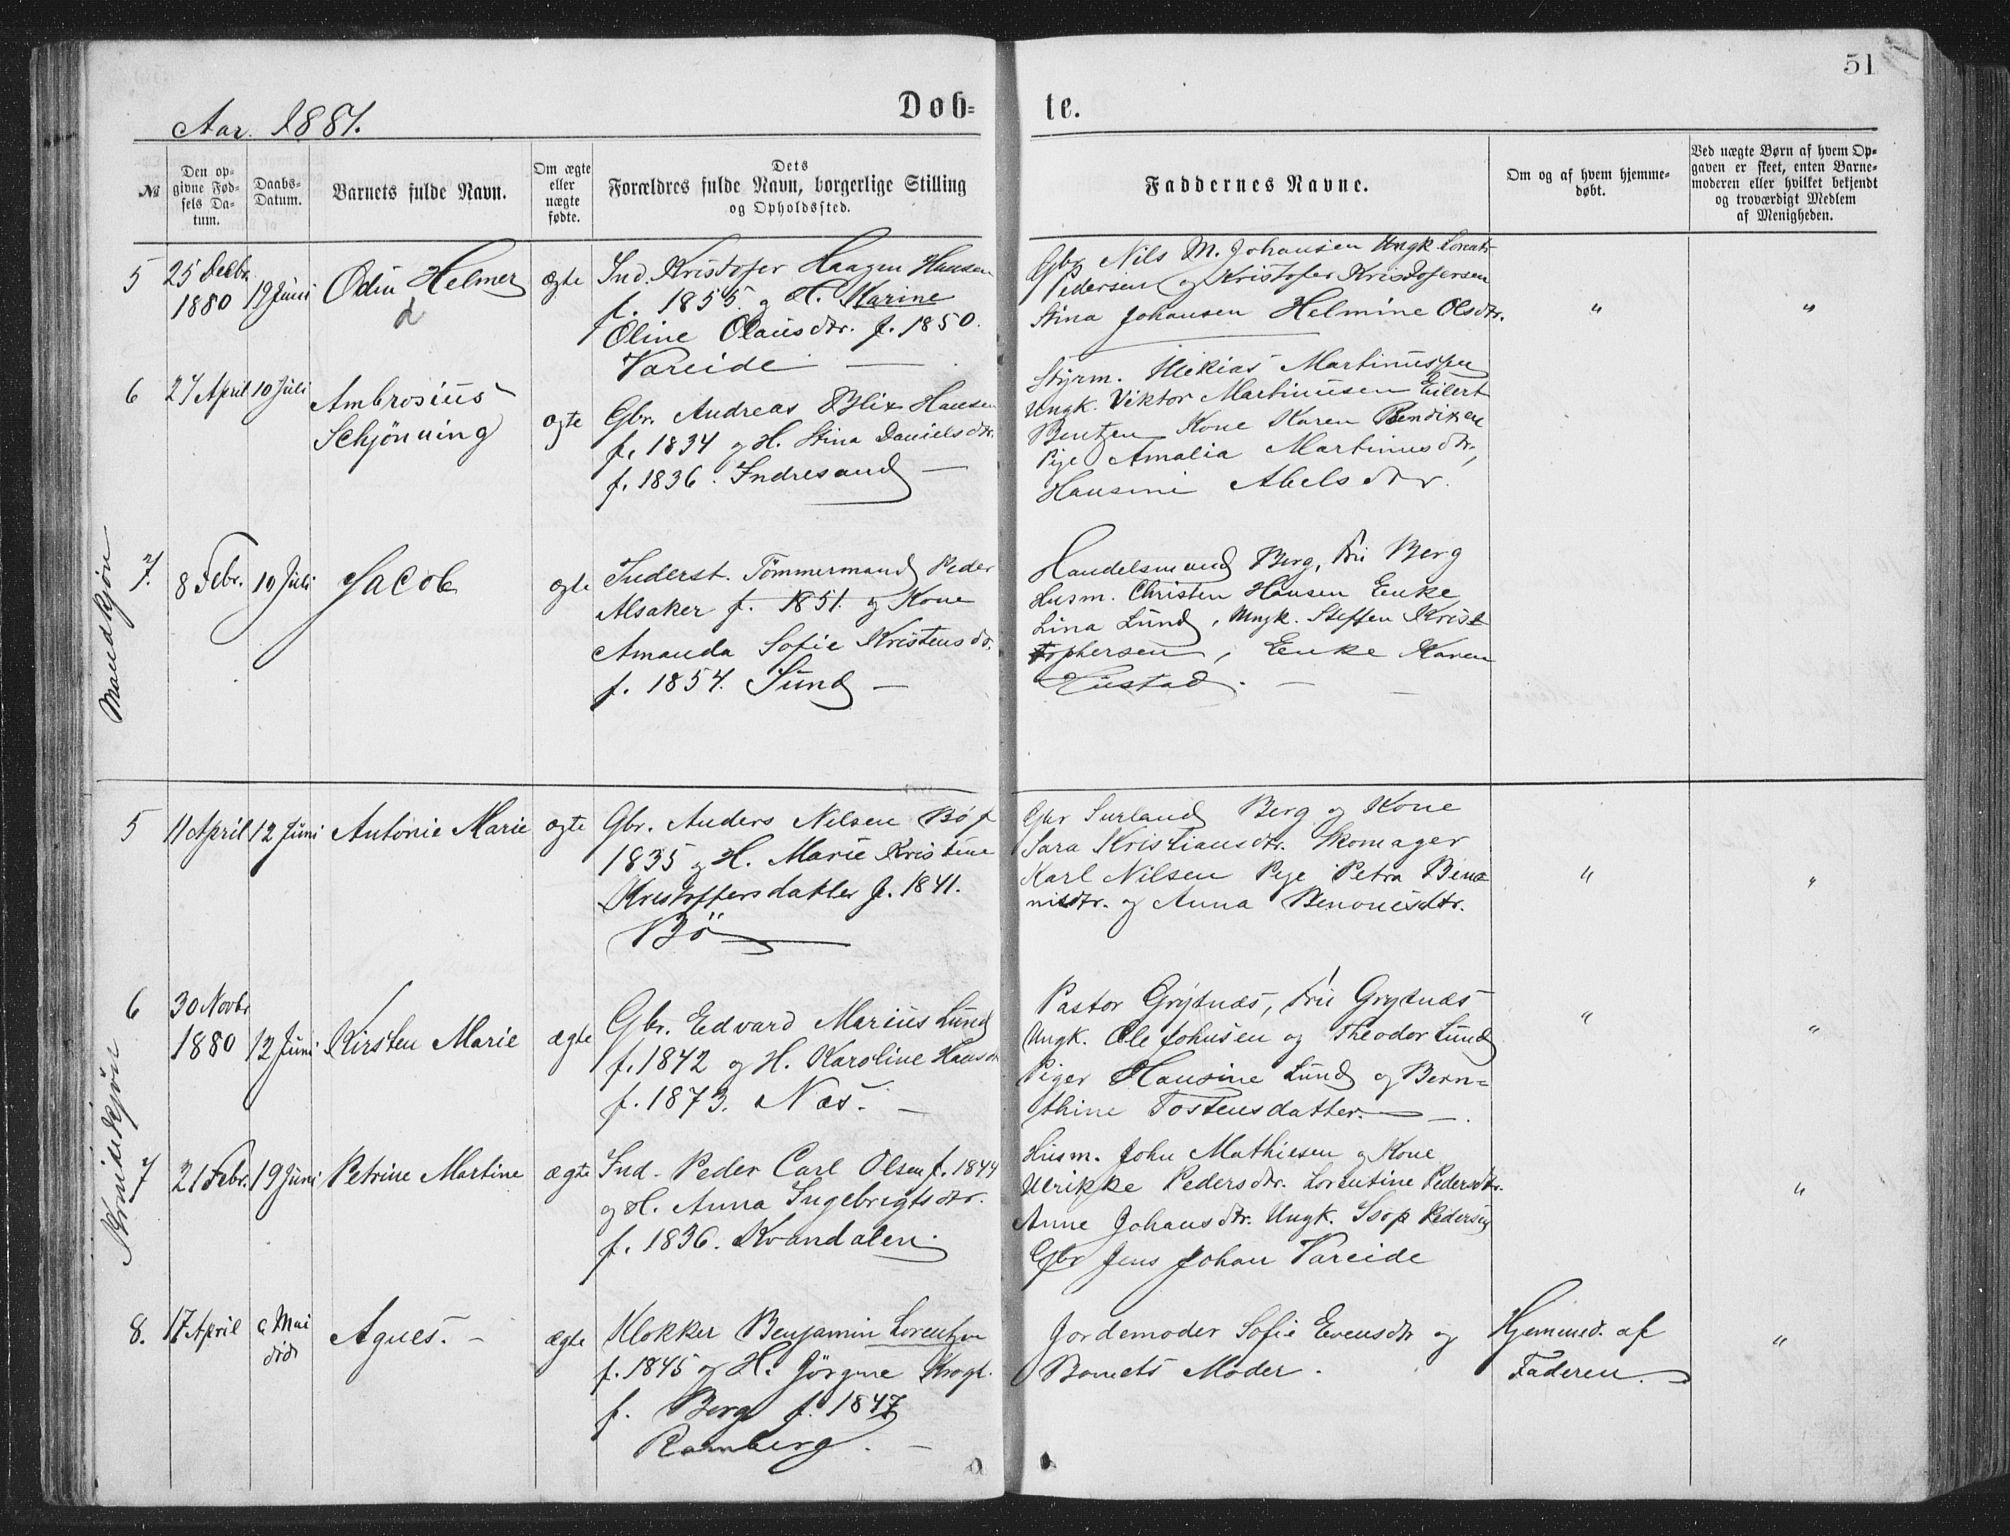 51
Aar. 1881.
Døb-
te.
№
Den op-
givne Fød-
sels Da-
tum.
Daabs-
Datum.
Barnets fulde Navn.
Om ægte
eller
uægte
fødte.
Dets
Forældres fulde Navn, borgerlige Stilling
og Opholdssted.
Faddernes Navne.
Om og af hvem hjemme-
døbt.
Ved uægte Børn af hvem Op-
gaven er skeet, enten Barne-
moderen eller hvilket bekjendt
og troværdigt Medlem
af Menigheden.
Mandkjøn
5
25 Decbr
1880
19 Juni
Odin Helmer
d
ægte
Ind. Kristofer Haagen Hansen
f. 1855 og H. Karine
Oline Olausdtr. f. 1850.
Vareide —
Gbr. Nils M. Johansen Ungk Lorents
Pedersen og Kristofer Kristofersen
Stina Johansen Helmine Olsdtr.
"
"
6
27 April
10 Juli
Ambrosius
Schjönning
ægte
Gbr. Andreas Blix Hansen
f. 1834 og H. Stina Danielsdtr.
f. 1836. Indresand —
Styrm. Mekias Martinussen
Ungk. Viktor Martinusen Eilert
Bentzen Kone Karen Bendixen
Pige Amalia Martinusdtr,
Hansine Abelsdtr.
7.
8 Febr.
10 Juli
Jacob
ægte
Inderst. Tömmermand Peder
Alsaker f. 1851. og Kone
Amanda Sofie Kristensdtr.
f. 1854. Sund —
Handelsmand Berg, Fru Berg
Husm. Christen Hansen Enke
Lina Lund, Ungk. Steffen Krist
tophersen, Enke Karen
Hustad. — —
Kvindekjøn
5
11 April
12 Juni
Antonie Marie
ægte
Gbr. Anders Nilsen Bö f
1835 og H. Marie Kristine
Kristoffersdatter f. 1841.
Bö —
Gbr Surland Berg og Kone
Sara Kristiansdtr. Skomager
Karl Nilsen Pige Petra Beno-
nisdtr. og Anna Benonisdtr.
"
"
6
30 Novbr
1880
12 Juni
Kirsten Marie
ægte
Gbr. Edvard Marius Lund
f. 1842 og H. Karoline Hansdtr
f. 1873. Næs. —
Pastor Grytnæs, Fru Grytnæs
Ungk. Ole Johnsen og Theodor Lund
Piger Hansine Lund og Bern-
thine Tostensdatter. —
"
"
7
21 Febr.
19 Juni
Petrine Martine
ægte
Ind. Peder Carl Olsen f. 1844
og H. Anna Ingebrigtsdtr.
f. 1836. Kvandalen.
Husm. John Mathiesen og Kone
Ulrikke Pedersdtr. Lorentine Pedersdtr.
Anne Johansdtr. Ungk. Isop Pedersen
Gbr Jens Johan Vareide
"
8.
17 April
Mai
Agnes. —
ægte
Klokker Benjamin Lorentzen
f. 1845 og H. Jörgine Krogt.
f. Berg f. 1847
Ramberg. —
Jordemoder Sofie Evensdtr og
Barnets Moder.
Hjemmed. af
Faderen.
"